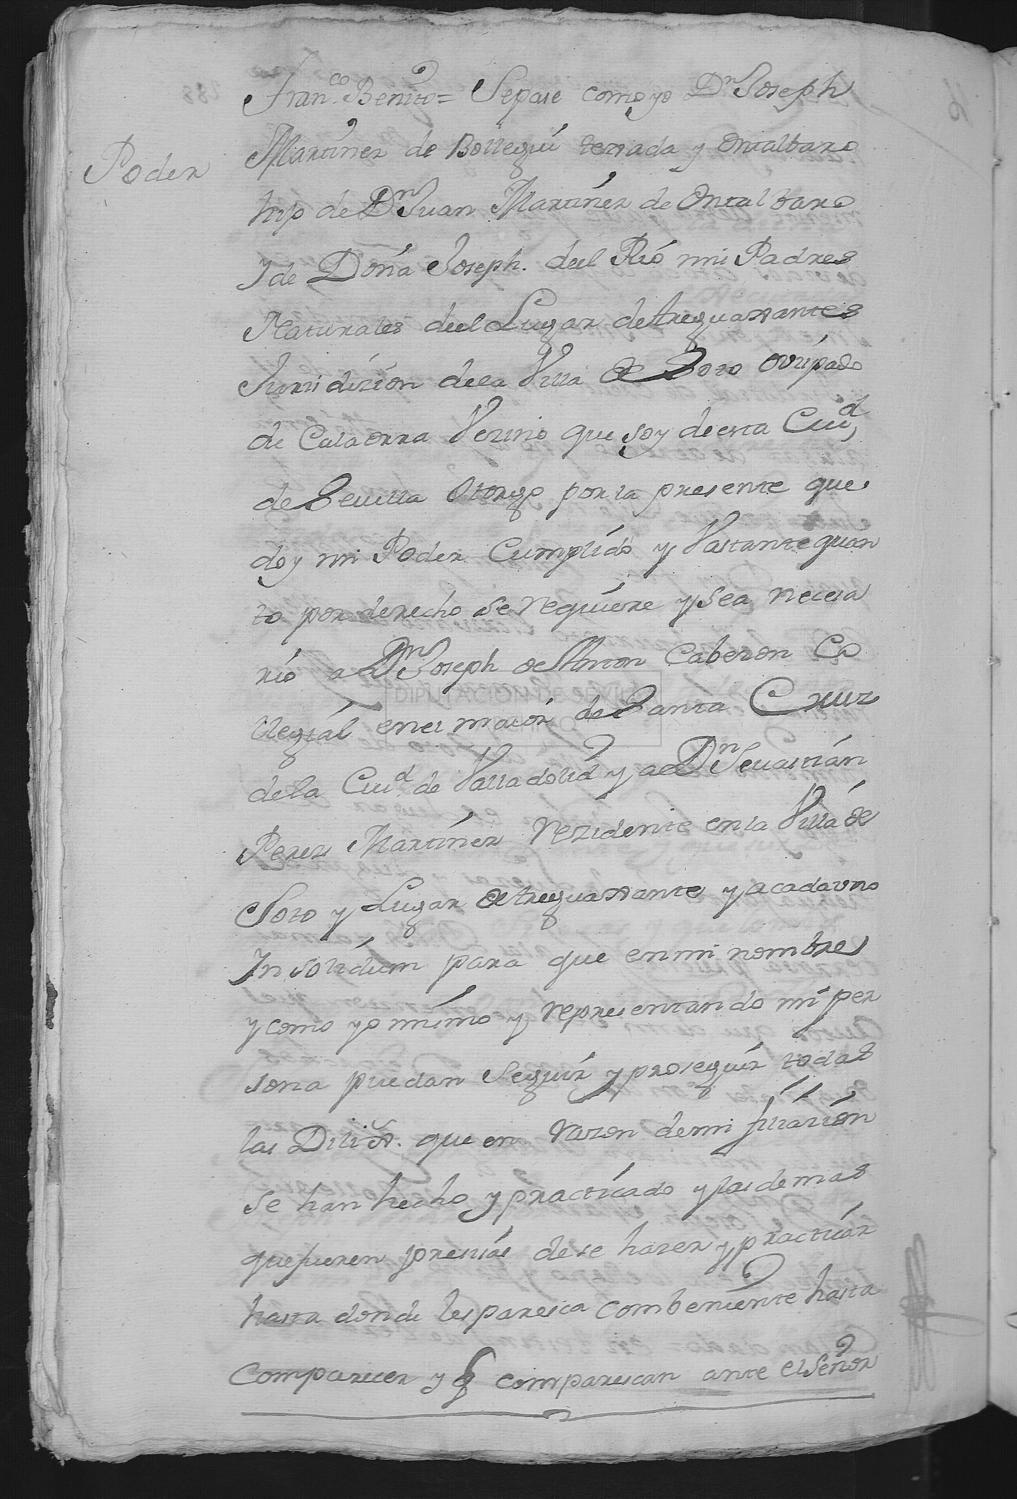 Franco. Benito = Sepase como yo Dn Joseph
Poder
Martinez de Bolleguí tejada y Ontalbaro
hijo de Dn Juan Martinez de Ontalbaro
y de Doña Joseph. del Rio mi Padres
Naturales del Lugar de treguaxantes
Jurridizion dela Villa de Soto ovispado
de Calaorra Vezino que soy de esta Ciud,
de Sevilla Otorgo por la presente que
doy mi Poder Cumplido y Vastante quan
to por derecho se requiere y sea necesa
rio a Dn Joseph de Amon Cabezon Co
legial en el maior de Santa Cruz
de la Ciud de Valladolid y a Dn Sevastián
Perez Martinez rezidente en la Villa de
Soto y Lugar de treguaxante y a cada vno
In solidum para que en mi nombre
y como yo mismo y representando mi per
sona puedan Seguir y proseguir todas
las Dilixs. que en razon de mi filiazion
se han hecho y practicado y las demas
que fueren presisas de se hazer y practicar
hasta donde les paresca combeniente hasta
Comparecer y q comparescan ante el Señor
DIPUTACION DE SEVILLA